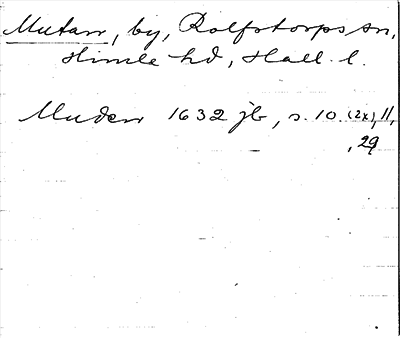 Mutan, by, Rolfstorps sn,
Himle hd, Hall. l.
Muden 1632 jb, s. 10 (2x), 11,
, 29